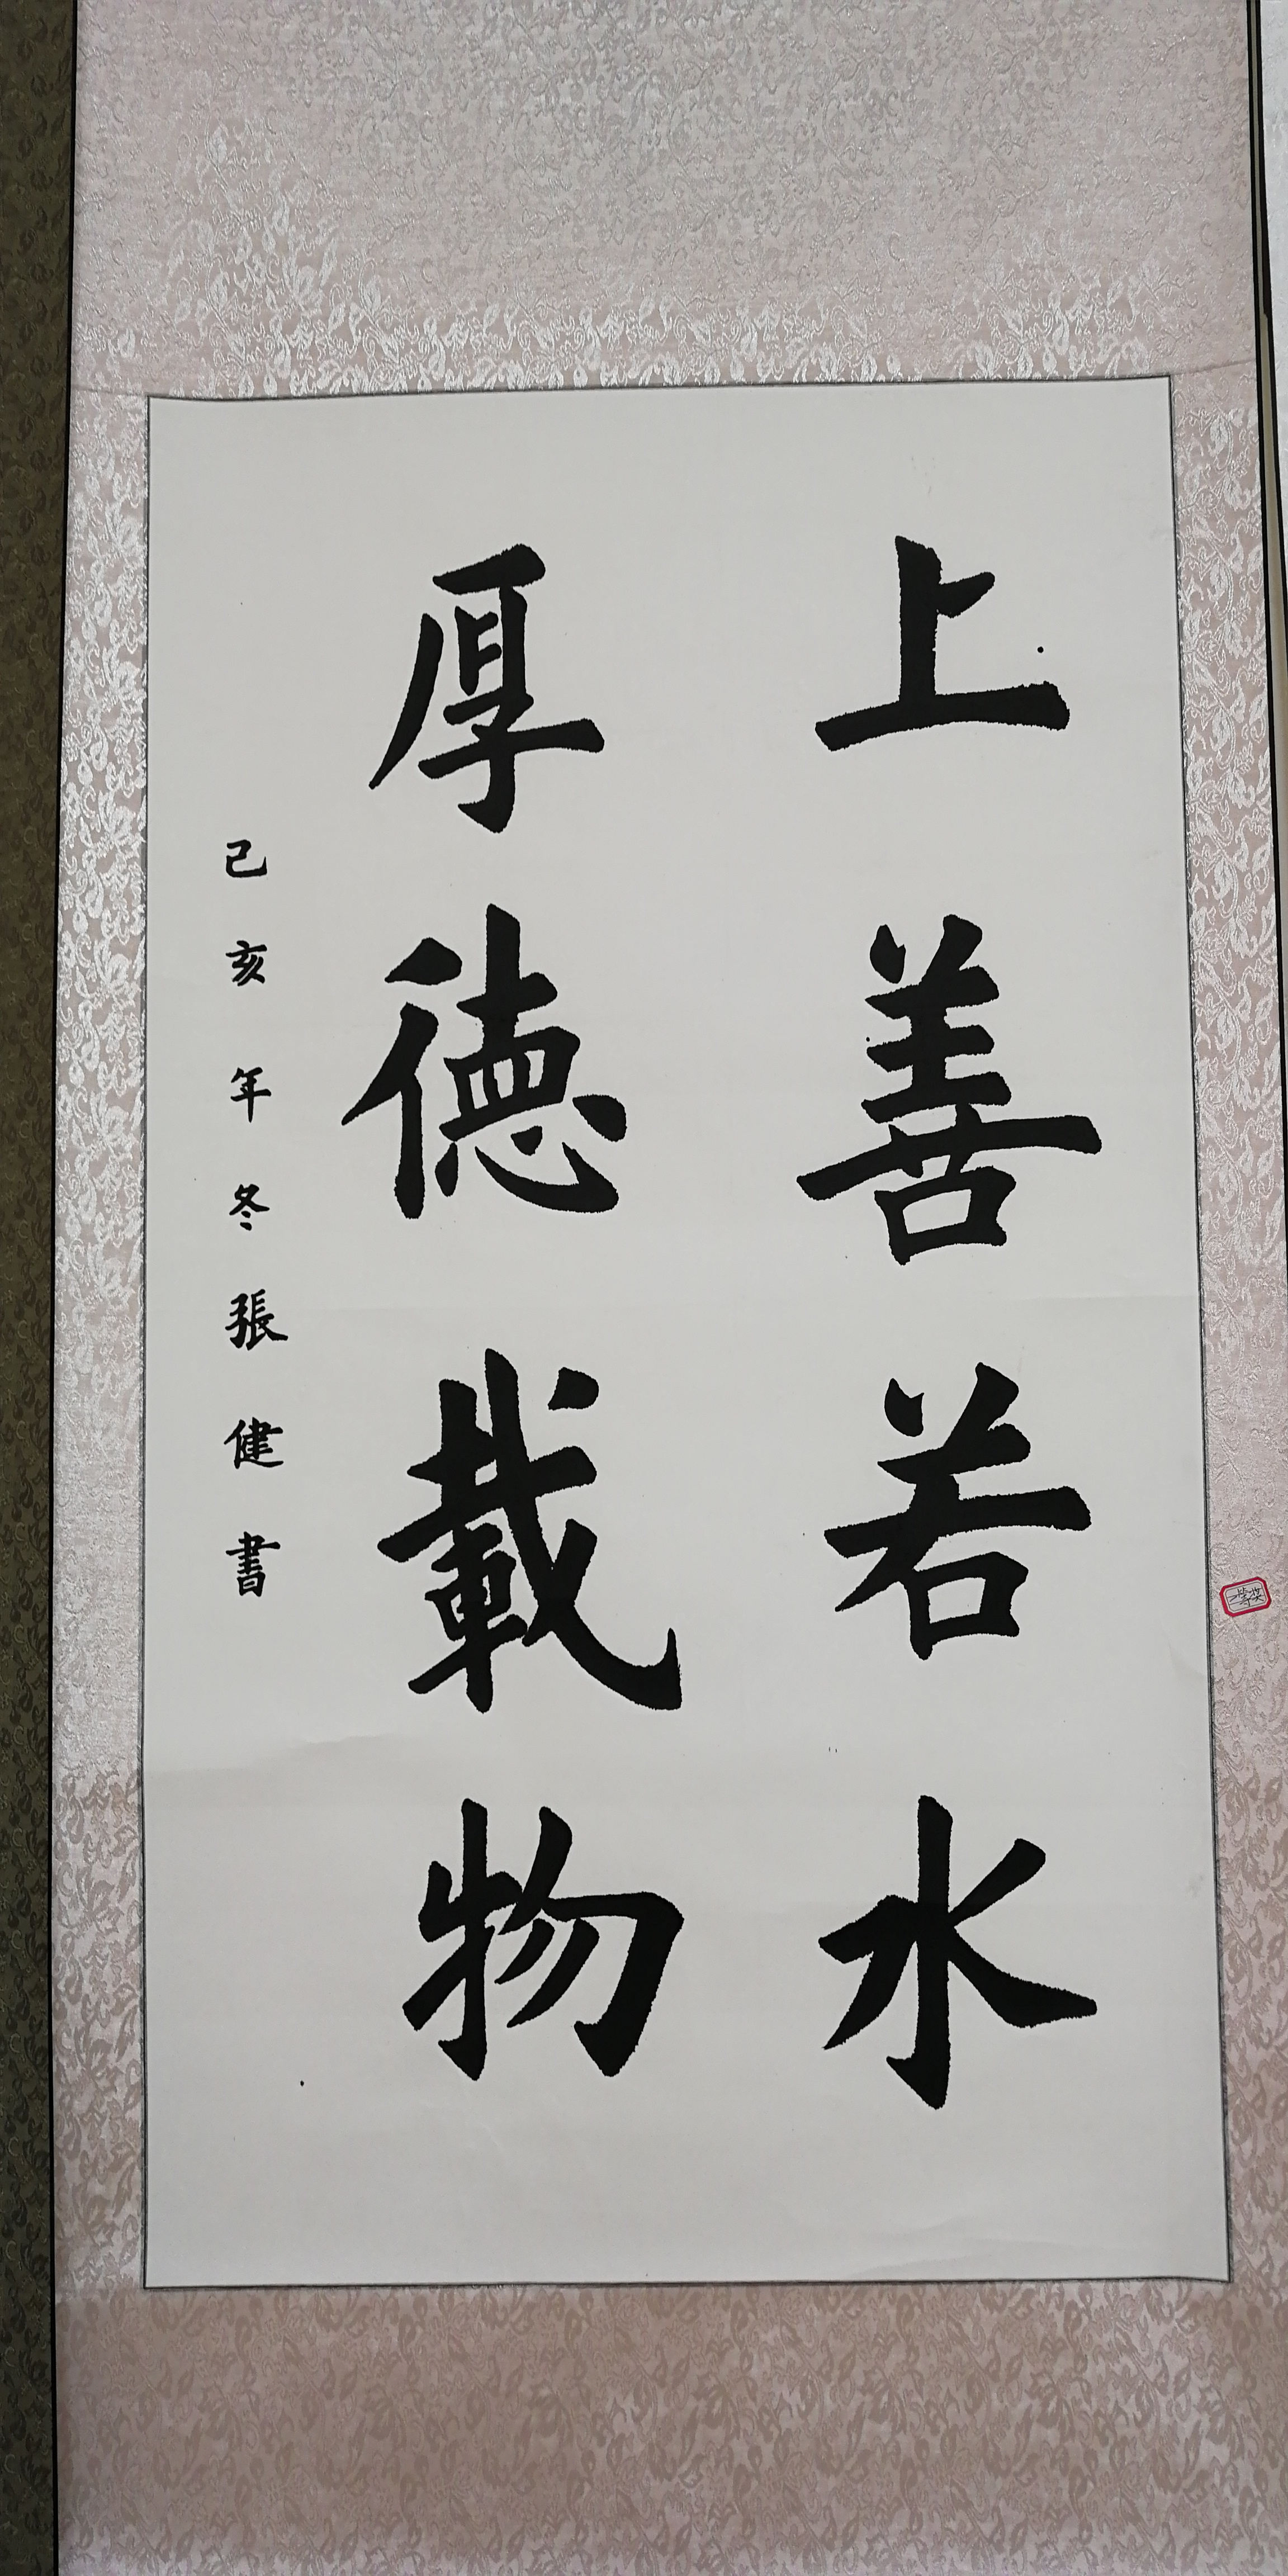 上善若水
厚德載物
己亥年冬張健書
二等奖